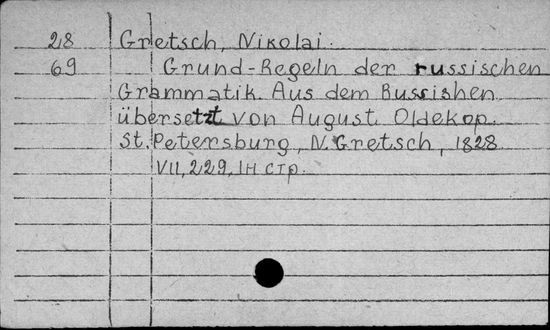 28 Gretsch, Nikolai.
69 Grund-Regeln der russischen
Grammatik. Aus dem Russishen
übersetzt von August Oldekop.
St. Petersburg, N. Gretsch, 1828
VII, 229, 1н стр.